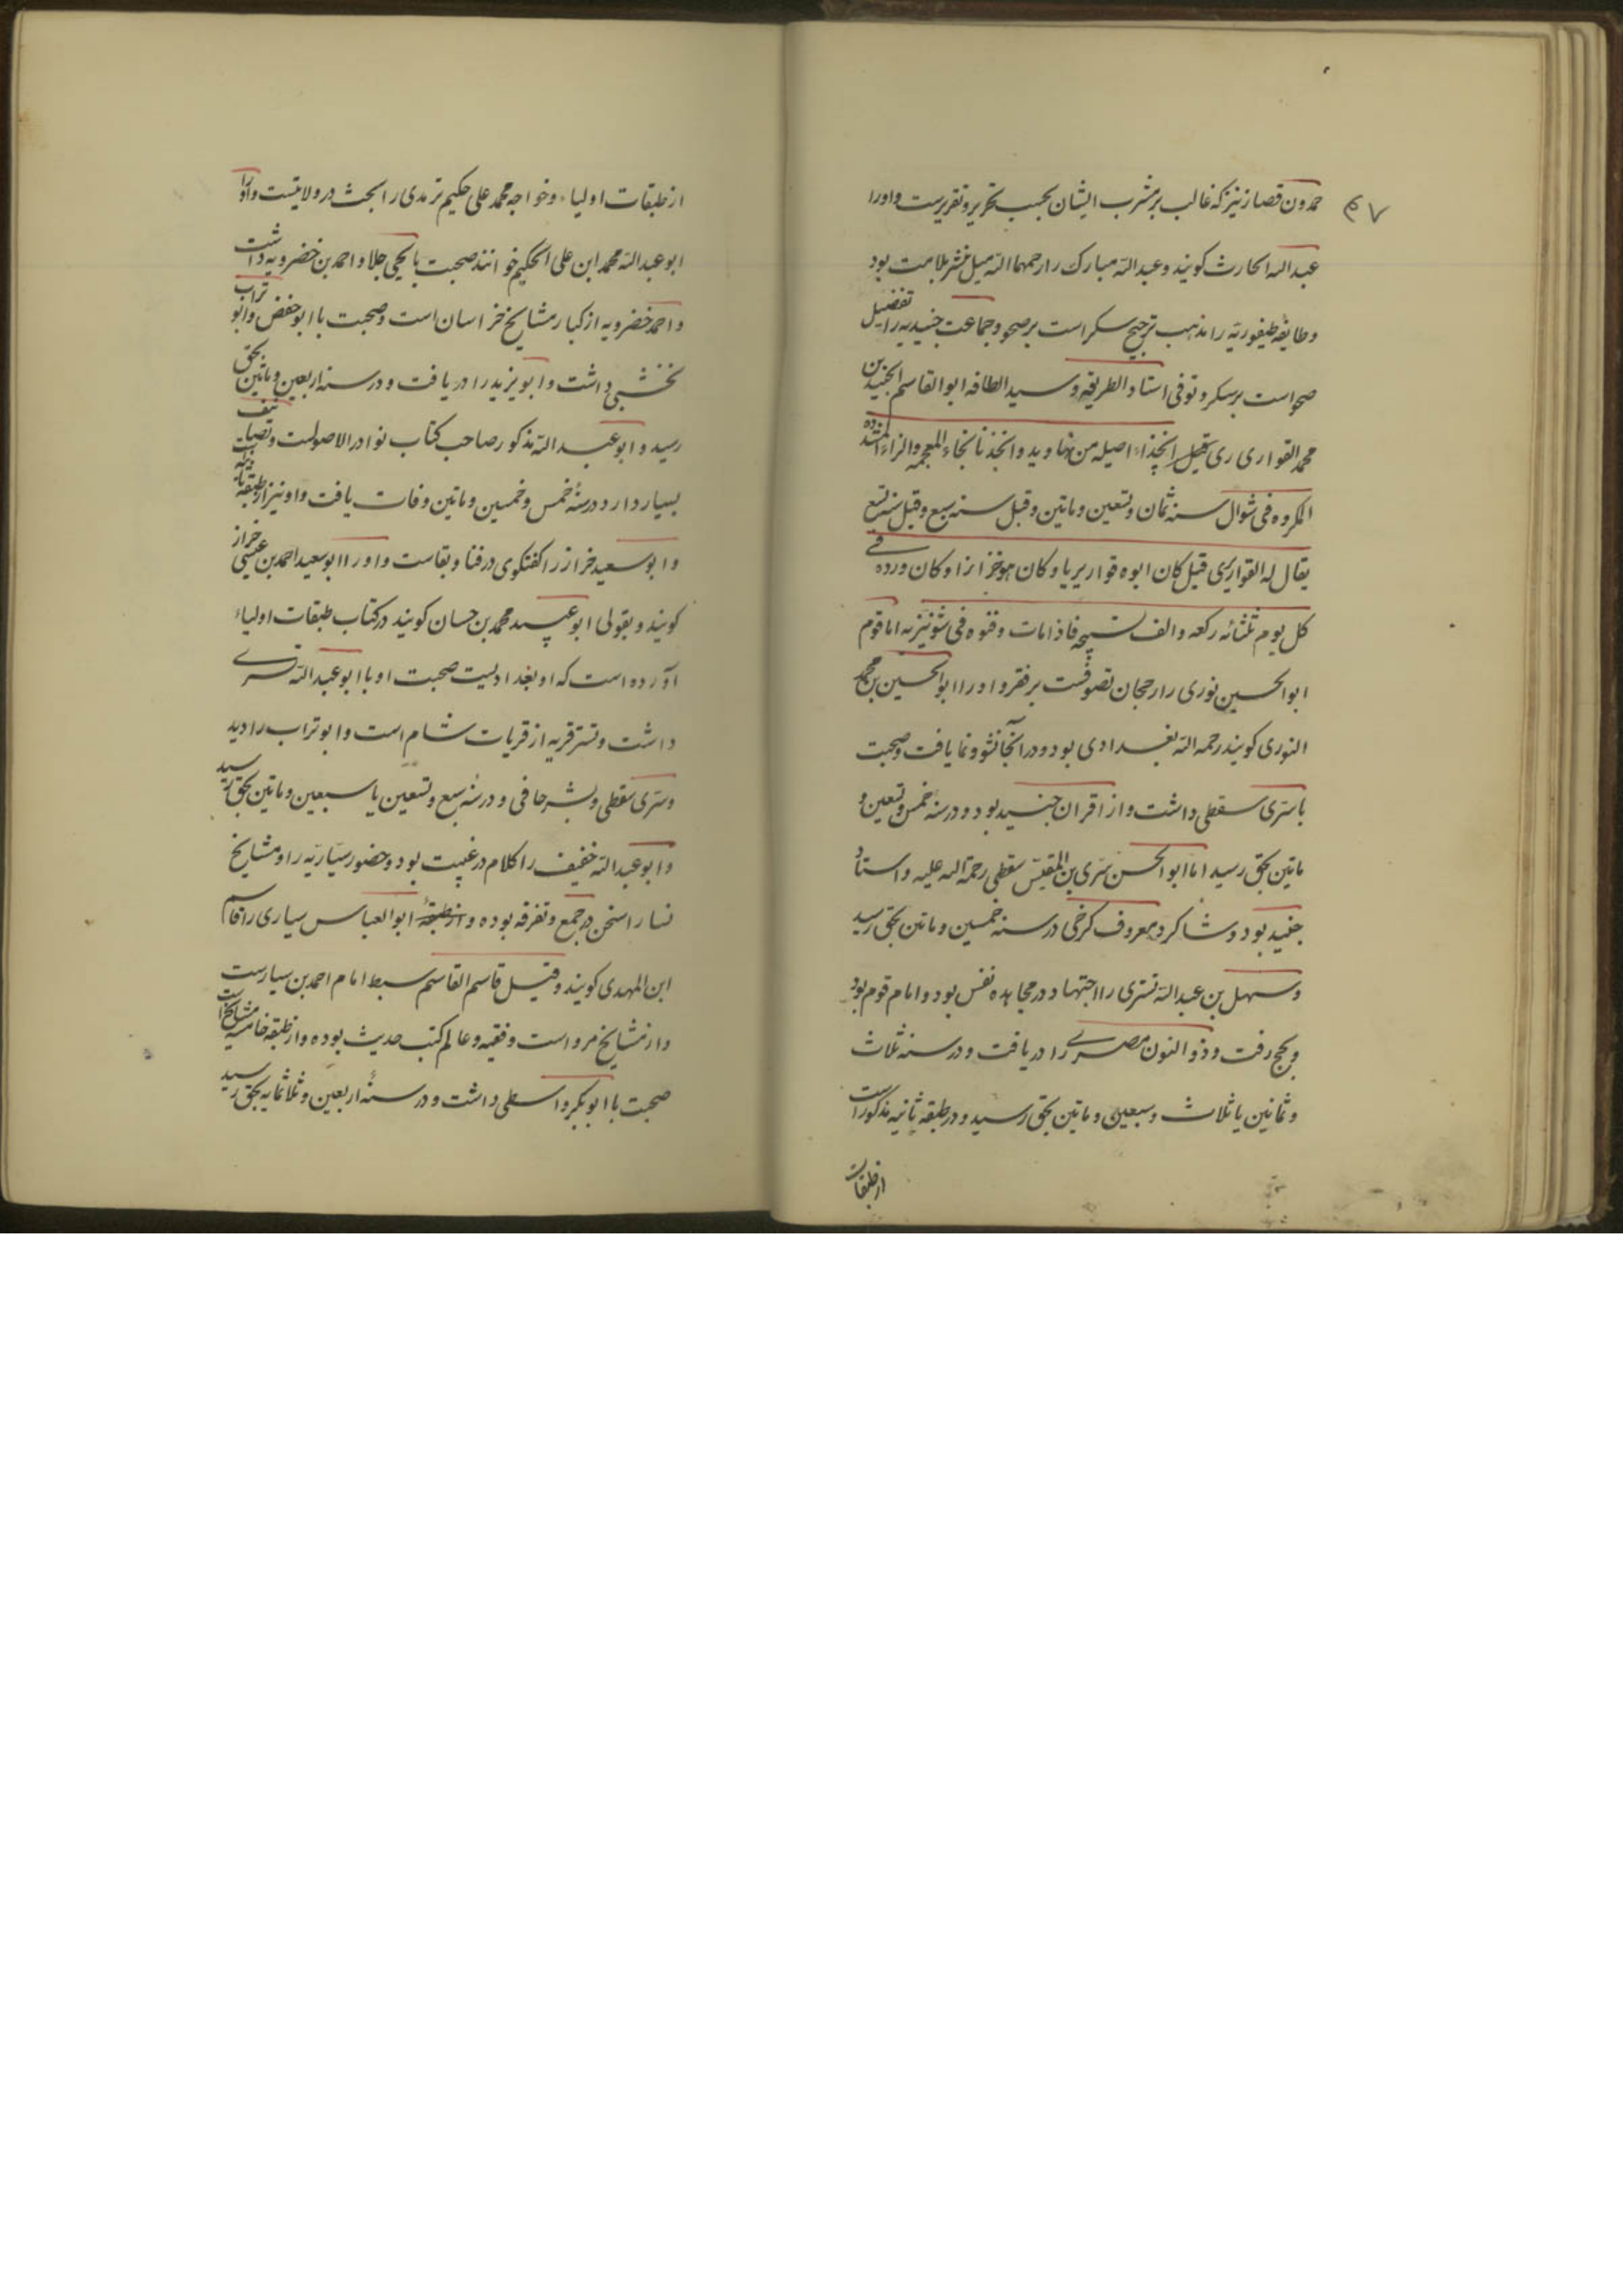 ۴۷
حمدون قصار نیز که غالب بر مشرب ایشان بحسب تحریر و تقریرست و اورا
عبدالله الحارث کویند و عبدالله مبارک را رحمهما الله میل بمشرب ملامت بود
و طایفه طیفوریّه را مذهب ترجیح سکر است بر صحو و جماعت جنیدیه را تفضیل
صحو است بر سکر و توفی استاد الطریقه و سید الطافه ابو القاسم الجنید بن
محمد القواری ری قیل الخزاز اصیله من نهاوید و الخزاز بالخاء المعجمه و الزاء المشدده
المکروه فی شوال سنه ثمان و تسعین و ماتین و قیل سنه سبع و قیل سنه تسع
یقال له القواریری قیل کان ابوه قواریریا و کان هو خزازا و کان ورده فی
کل یوم ثلثمائه رکعه و الف تسبیحه فاذا مات دفنوه فی شونیزیه اما قوم
ابو الحسین نوری را رجحان تصوفست بر فقر و اورا ابو الحسین بن محمد
النوری کویند رحمه الله بغدادی بود و در آنجا نشو و نما یافت و صحبت
با سَری سقطی داشت و از اقران جنید بود و در سنهٔ خمس و تسعین و
ماتین بحق رسید اما ابو الحسن سَری بن المغلّس سقطی رحمة الله علیه و استاد
جنید بود و شاکرد معروف کرخی در سنه خمسین و ماتین بحق رسید
و سهل بن عبدالله تستری را اجتهاد در مجاهده نفس بود و امام قوم بود
و بحج رفت و ذو النون مصری را دریافت و در سنه ثلاث
و ثمانین یا ثلاث و سبعین و ماتین بحق رسید و در طبقه ثانیه مذکور است
از طبقات
از طبقات اولیاء و خواجه محمد علی حکیم ترمدی را بحث در ولایتست و اورا
ابو عبدالله محمد ابن علی الحکیم خوانند صحبت با یحیی جلا و احمد بن خضرویه داشت
و احمد خضرویه از کبار مشایخ خراسان است و صحبت با ابو حفص و ابو تراب
نخشبی داشت و ابو یزید را دریافت و در سنه اربعین و ماتین بحق
رسید و ابو عبدالله مذکور صاحب کتاب نوادر الاصولست و تصانیف
بسیار دارد در سنهٔ خمس و خمسین و ماتین وفات یافت و او نیز از طبقه ثانیه است
و ابو سعید خراز را کفتکوی در فنا و بقاست و اورا ابو سعید احمد بن عیسی خراز
کویند و بقولی ابو عبید محمد بن حسان کویند در کتاب طبقات اولیاء
آورده است که او بغدادیست صحبت او با ابو عبدالله تستری
داشت و تستر قریه از قریات شام است و ابو تراب را دید
و سَری سقطی و بشر حافی و در سنهٔ سبع و تسعین یا سبعین و ماتین بحق رسید
و ابو عبدالله خفیف را کلام در غیبت بود و حضور سیّاریّه را و مشایخ
نسا را سخن در جمع و تفرقه بوده و از طبقهٔ ابو العباس سیاری را قاسم
ابن المهدی کویند و قیل قاسم القاسم سبط امام احمد بن سیارست
و از مشایخ مرو است و فقیه و عالم کتب حدیث بوده و از طبقه خامسه مشایخ است
صحبت با ابو بکر واسطی داشت و در سنهٔ اربعین و ثلاثمایه بحق رسید